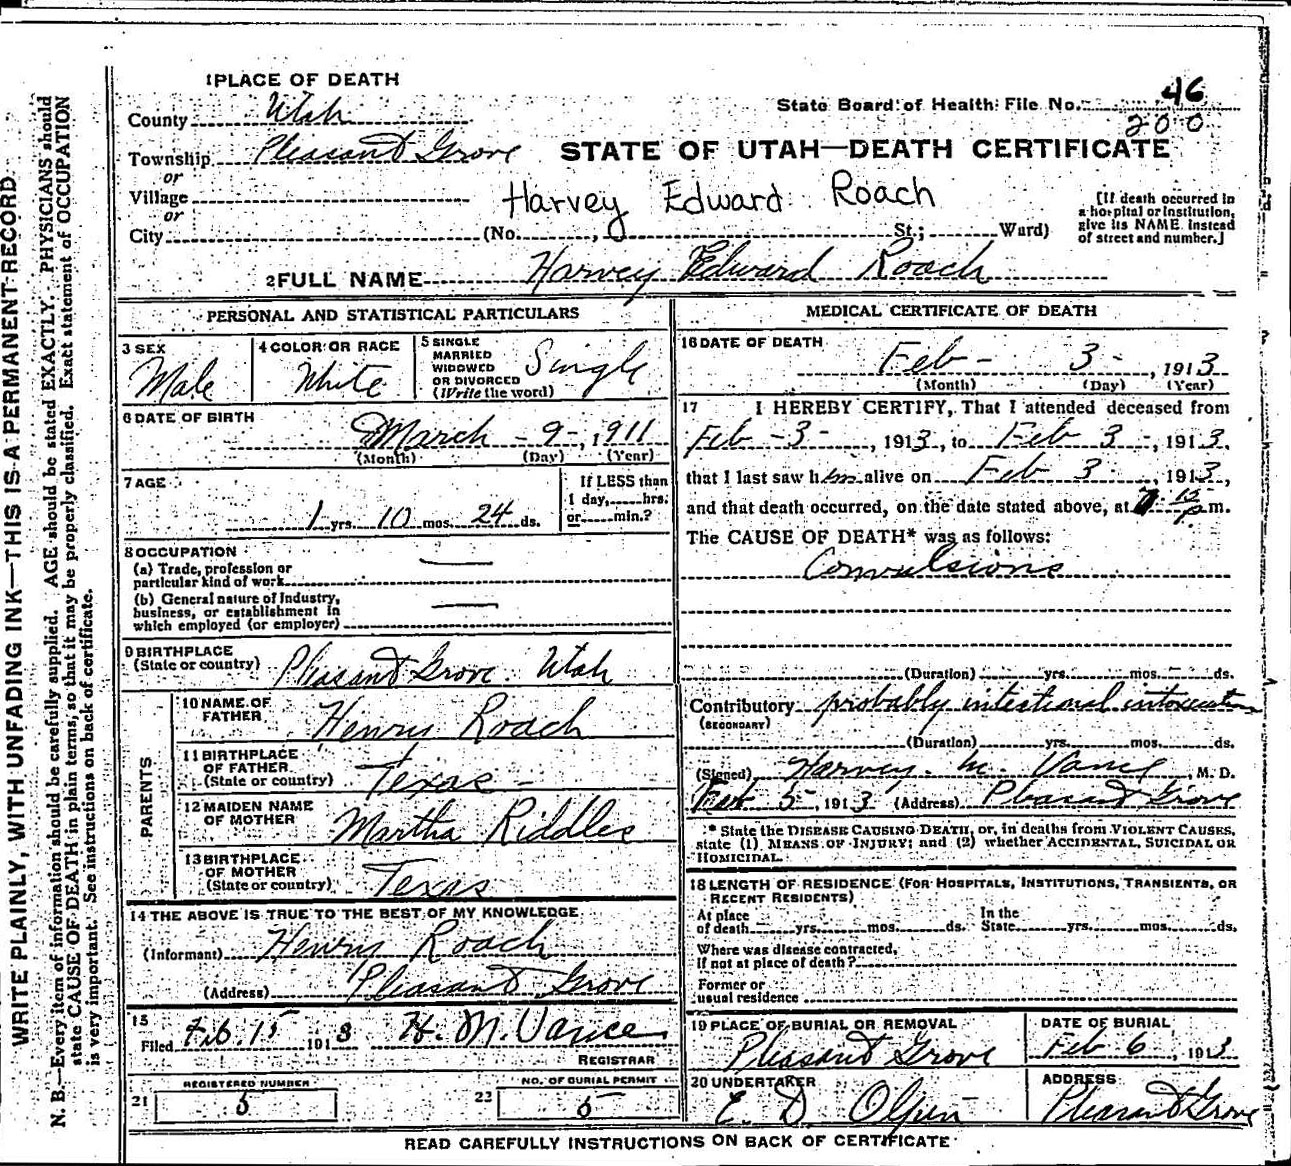 WRITE PLAINLY, WITH UNFADING INK—THIS IS A PERMANENT RECORD.
N. B.—Every item of information should be carefully supplied. AGE should be stated EXACTLY. PHYSICIANS should
state CAUSE OF DEATH in plain terms, so that it may be properly classified. Exact statement of OCCUPATION
is very important. See instructions on back of certificate.
1 PLACE OF DEATH
County Utah
Township Pleasant Grove
or
Village
or
City (No. , St.; Ward)
State Board of Health File No. 46
200
STATE OF UTAH—DEATH CERTIFICATE
Harvey Edward Roach
[If death occurred in
a hospital or institution,
give its NAME instead
of street and number.]
2 FULL NAME Harvey Edward Roach
PERSONAL AND STATISTICAL PARTICULARS
3 SEX
Male
4 COLOR OR RACE
White
5 SINGLE
MARRIED
WIDOWED
OR DIVORCED
(Write the word)
Single
6 DATE OF BIRTH
March - 9 -, 1911
(Month) (Day) (Year)
7 AGE
1 yrs. 10 mos. 24 ds.
If LESS than
1 day, hrs.
or min.?
8 OCCUPATION
(a) Trade, profession or
particular kind of work
(b) General nature of Industry,
business, or establishment in
which employed (or employer)
9 BIRTHPLACE
(State or country) Pleasant Grove Utah
PARENTS
10 NAME OF
FATHER Henry Roach
11 BIRTHPLACE
OF FATHER
(State or country) Texas -
12 MAIDEN NAME
OF MOTHER Martha Riddles
13 BIRTHPLACE
OF MOTHER
(State or country) Texas
14 THE ABOVE IS TRUE TO THE BEST OF MY KNOWLEDGE
(Informant) Henry Roach
(Address) Pleasant Grove
15
Filed Feb 15 1913 H. M. Vance
REGISTRAR
REGISTERED NUMBER
21 5
NO. OF BURIAL PERMIT
22 5
MEDICAL CERTIFICATE OF DEATH
16 DATE OF DEATH
Feb - 3 - , 1913
(Month) (Day) (Year)
17 I HEREBY CERTIFY, That I attended deceased from
Feb - 3 - , 1913, to Feb 3 -, 1913,
that I last saw him alive on Feb 3 , 1913,
and that death occurred, on the date stated above, at 7 15 p m.
The CAUSE OF DEATH* was as follows:
Convulsions
(Duration) yrs. mos. ds.
Contributory probably intestional intoxication
(SECONDARY)
(Duration) yrs. mos. ds.
(Signed) Harvey. M. Vance, M. D.
Feb 5, 1913 (Address) Pleasant Grove
* State the DISEASE CAUSING DEATH, or, in deaths from VIOLENT CAUSES,
state (1) MEANS OF INJURY; and (2) whether ACCIDENTAL, SUICIDAL OR
HOMICIDAL.
18 LENGTH OF RESIDENCE (FOR HOSPITALS, INSTITUTIONS, TRANSIENTS, OR
RECENT RESIDENTS)
At place In the
of death yrs. mos. ds. State yrs. mos. ds.
Where was disease contracted,
If not at place of death?
Former or
usual residence
19 PLACE OF BURIAL OR REMOVAL
Pleasant Grove
DATE OF BURIAL
Feb 6 , 1913
20 UNDERTAKER
E D Olpin
ADDRESS
Pleasant Grove
READ CAREFULLY INSTRUCTIONS ON BACK OF CERTIFICATE